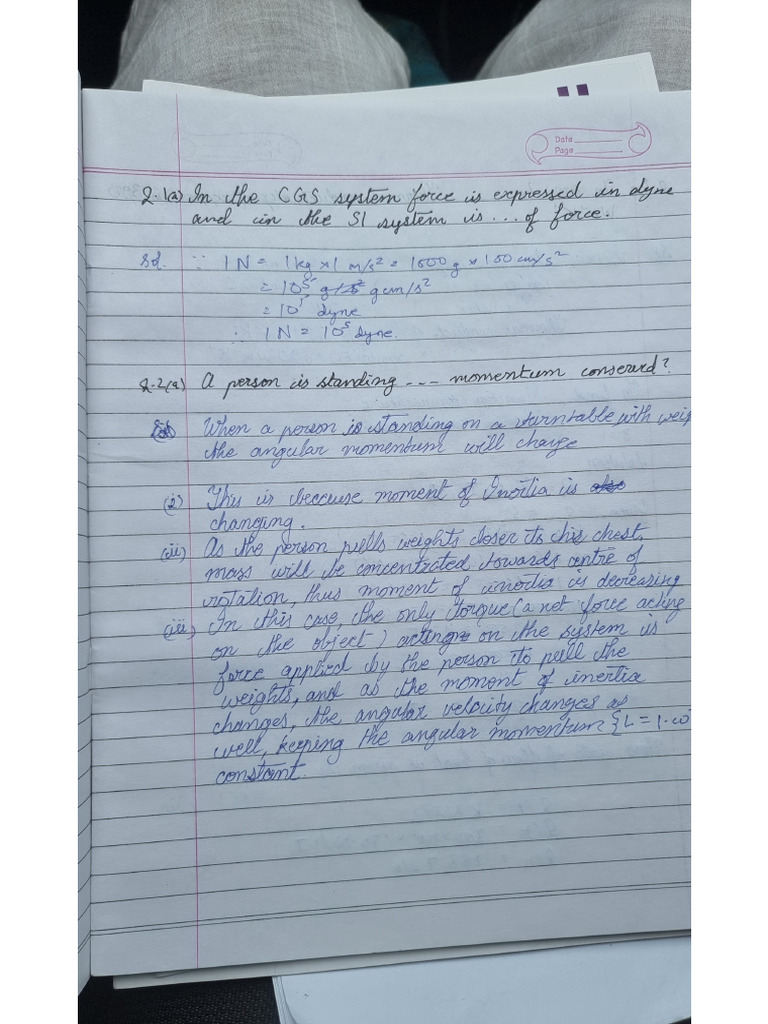 Date
Page
Q.1(a) In the CGS system force is expressed in dyne
and in the SI system is ... of force.
Sol. ∵ 1 N = 1 kg × 1 m/s² = 1000 g × 100 cm/s²
= 10⁵ g cm/s²
= 10⁵ dyne
∴ 1 N = 10⁵ dyne.
Q.2(a) A person is standing --- momentum conserved?
When a person is standing on a turntable with weig
the angular momentum will change
(i) This is because moment of Inertia is
changing.
(ii) As the person pulls weights closer to his chest,
mass will be concentrated towards centre of
rotation, thus moment of inertia is decreasing
(iii) In this case, the only torque (a net force acting
on the object) acting on the system is
force applied by the person to pull the
weights, and as the momont of inertia
changes, the angular velocity changes as
well, keeping the angular momentum {L = I·ω
constant.